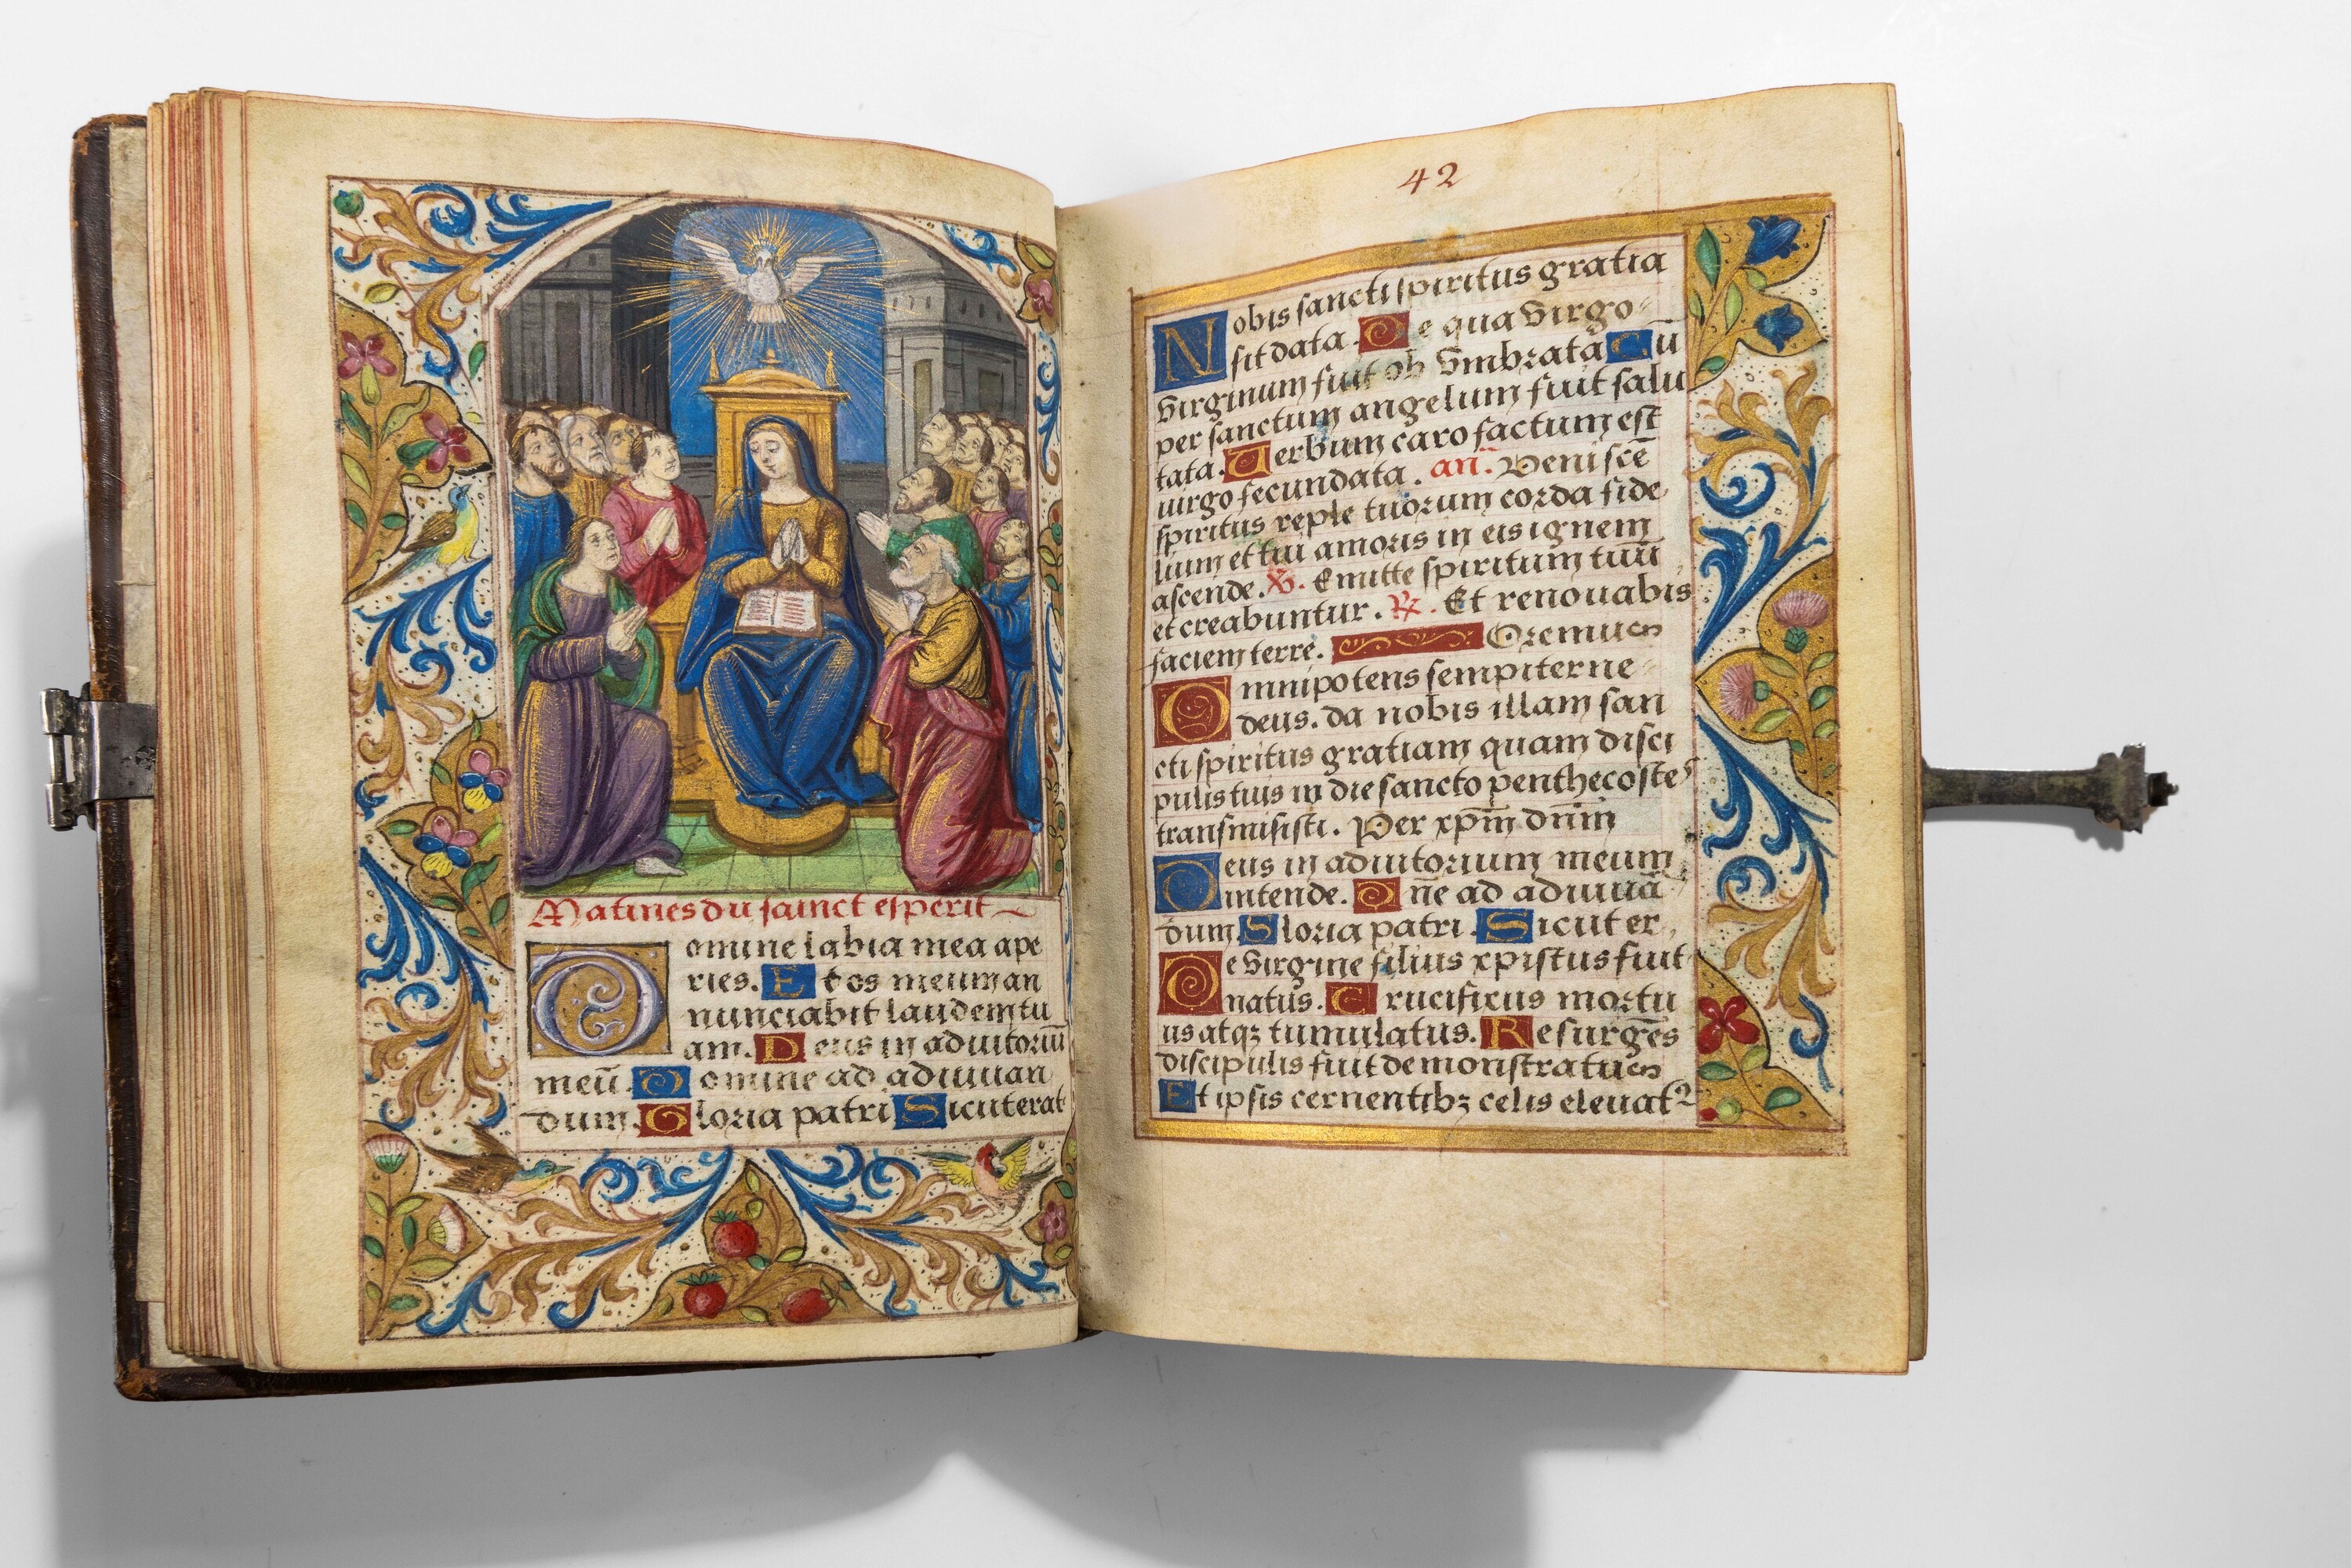 Matines du sainct esperit
Domine labia mea ape
ries. Et os meum an
nunciabit laudem tu
am. Deus in adiutoriū
meū. Domine ad adiuuan
dum. Gloria patri Sicut erat
42
Nobis sancti spiritus gratia
sit data. De qua virgo
virginum fuit ob vmbrata Cū
per sanctum angelum fuit salu
tata. Verbum caro factum est
uirgo fecundata. an̄. Veni sc̄e
spiritus reple tuorum corda fide
lium et tui amoris in eis ignem
ascende. ℣. Emitte spiritum tuū
et creabuntur. ℟. Et renouabis
faciem terre. Oremus
Omnipotens sempiterne
deus. da nobis illam san
cti spiritus gratiam quam disci
pulis tuis in die sancto penthecostes
transmisisti. Per xp̄m dn̄m
Deus in adiutorium meum
intende. Dn̄e ad adiuuā
dum Gloria patri. Sicut er
De virgine filius xpistus fuit
natus. Crucifixus mortu
us atqꝫ tumulatus. Resurgēs
discipulis fuit demonstratus
Et ipsis cernentibꝫ celis eleuatꝰ